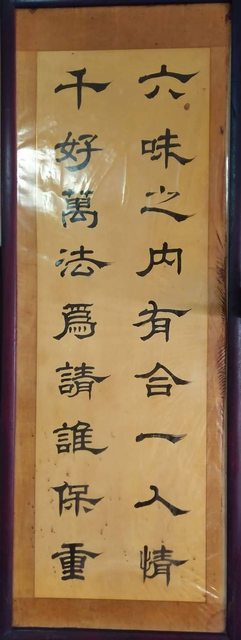 六味之内有合一人情
千好萬法為請誰保重